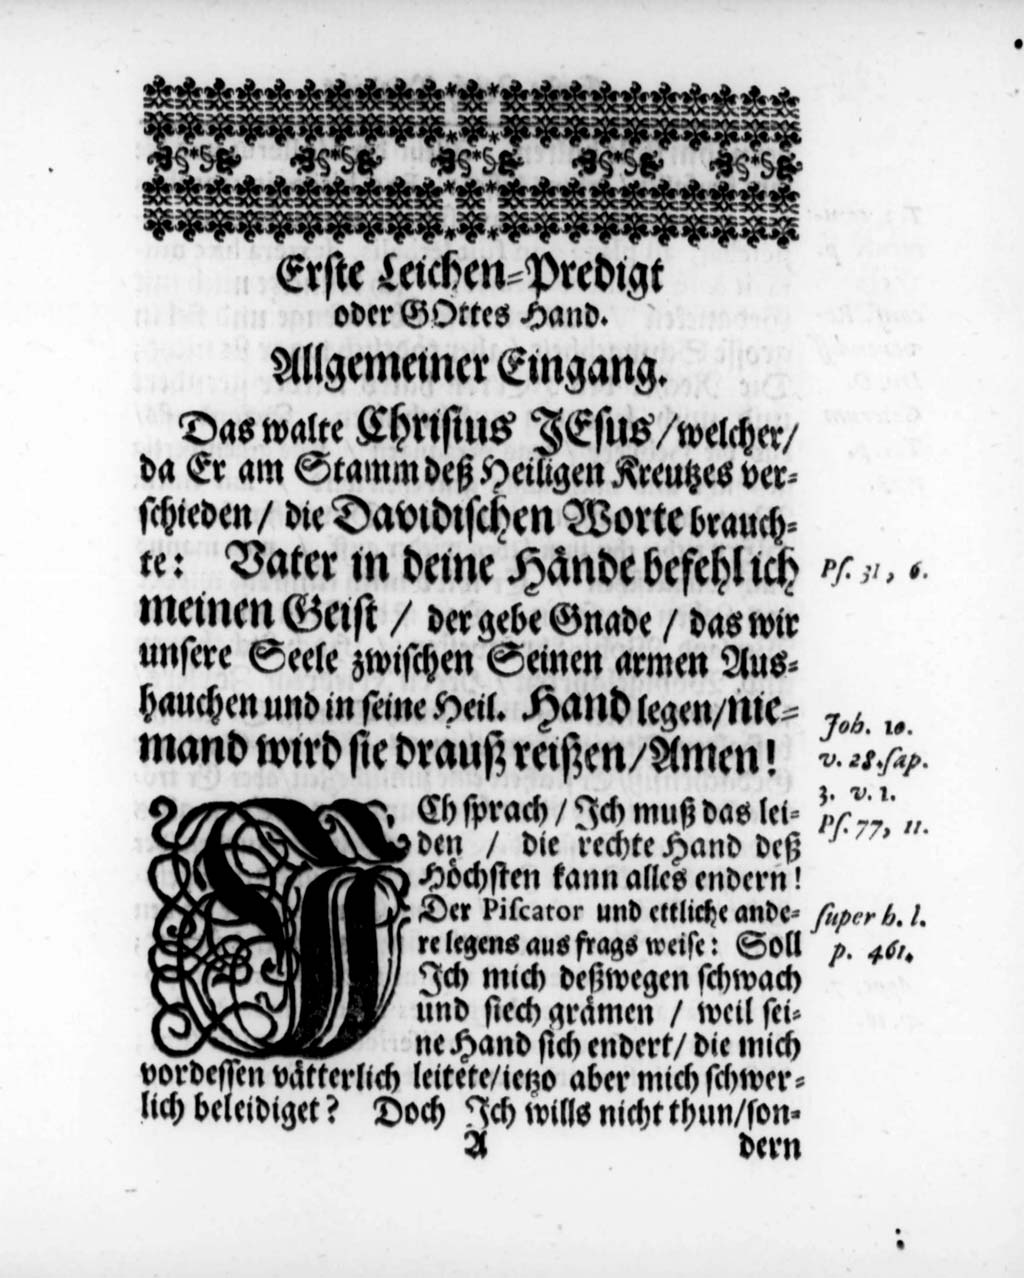 Erste Leichen-Predigt
oder GOttes Hand.
Allgemeiner Eingang.
Das walte Christus JEsus / welcher /
da Er am Stamm deß Heiligen Kreutzes ver-
schieden / die Davidischen Worte brauch-
te: Vater in deine Hände befehl ich
meinen Geist / der gebe Gnade / das wir
unsere Seele zwischen Seinen armen Aus-
hauchen und in seine Heil. Hand legen / nie-
mand wird sie drauß reißen / Amen!
ICh sprach / Ich muß das lei-
den / die rechte Hand deß
Höchsten kann alles endern!
Der Piscator und ettliche ande-
re legens aus frags weise: Soll
Ich mich deßwegen schwach
und siech grämen / weil sei-
ne Hand sich endert / die mich
vordessen vätterlich leitete / ietzo aber mich schwer-
lich beleidiget? Doch Ich wills nicht thun / son-
A dern
Ps. 31, 6.
Joh. 10.
v. 28. sap.
3. v. 1.
Ps. 77, 11.
super h. l.
p. 461.